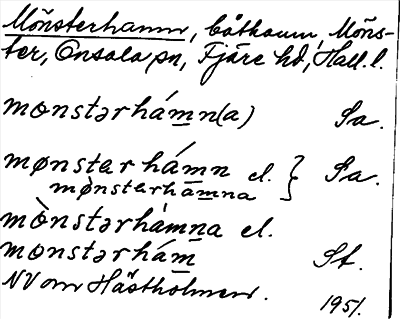 Mönsterhamn, båthamn, Möns-
ter, Onsala sn, Fjäre hd, Hall. l.
monstərhámn(a) Sa.
mønstərhámn el. } Sa.
mønstərhamna
mònstərhàmna el.
monstərhám St.
NV om Hästholmen.
1951.